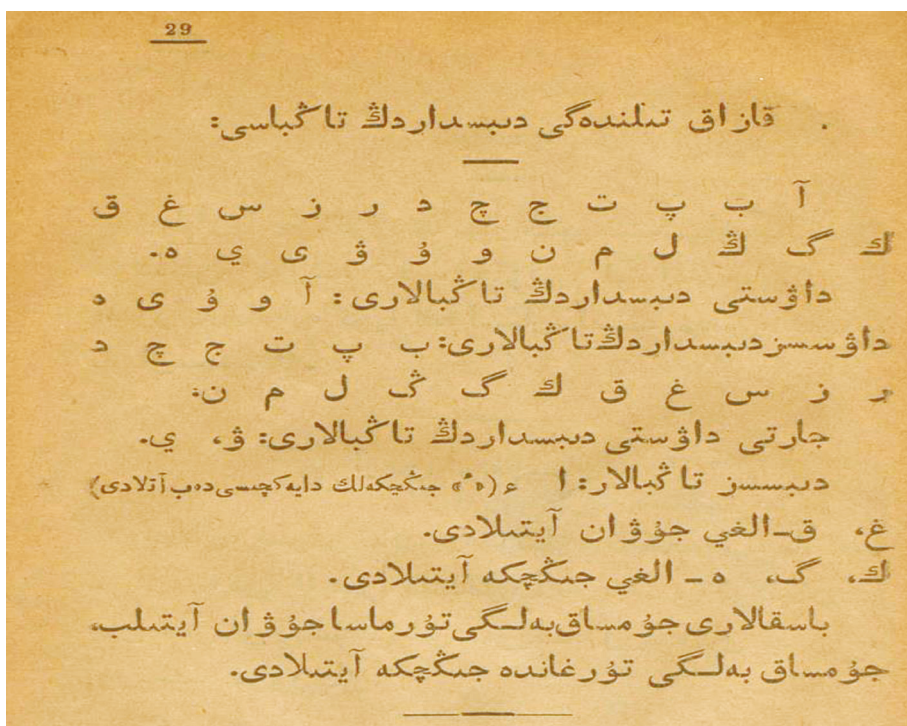 29
قازاق تىلىندەگى دىبىسداردىڭ تاڭباسى:
آ ب پ ت ج چ د ر ز س غ ق
ك گ ڭ ل م ن و ۇ ۋ ى ي ە.
داۋستى دىبىسداردىڭ تاڭبالارى: آ و ۇ ى ە
داۋسسز دىبىسداردىڭ تاڭبالارى: ب پ ت ج چ د
ر ز س غ ق ك گ ڭ ل م ن:
جارتى داۋستى دىبىسداردىڭ تاڭبالارى: ۋ، ي.
دىبىسسز تاڭبالار: ا ء («ء» جىڭىچكەلىك دايەكچىسى دەب آتلادى)
غ، ق_الغي جۇۋان آيتىلادى.
ك، گ، ە_ الغي جىڭىچكە آيتىلادى.
باسقالارى جۇمساق بەلگى تۇرماسا جۇۋان آيتىلىب،
جۇمساق بەلگى تۇرغاندە جىڭىچكە آيتىلادى.